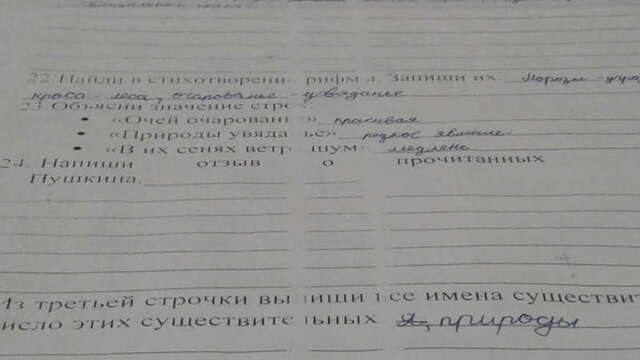 22. Найди в стихотворении рифмы. Запиши их. Морозы - угро
краса - леса, очарование - увяданье
23. Объясни значение строк:
• «Очей очарованье» красивая
• «Природы увяданье» редкое явление
• «В их сенях ветра шум»
24. Напиши отзыв о прочитанных
Пушкина.
Из третьей строчки выпиши все имена существит
число этих существительных природы